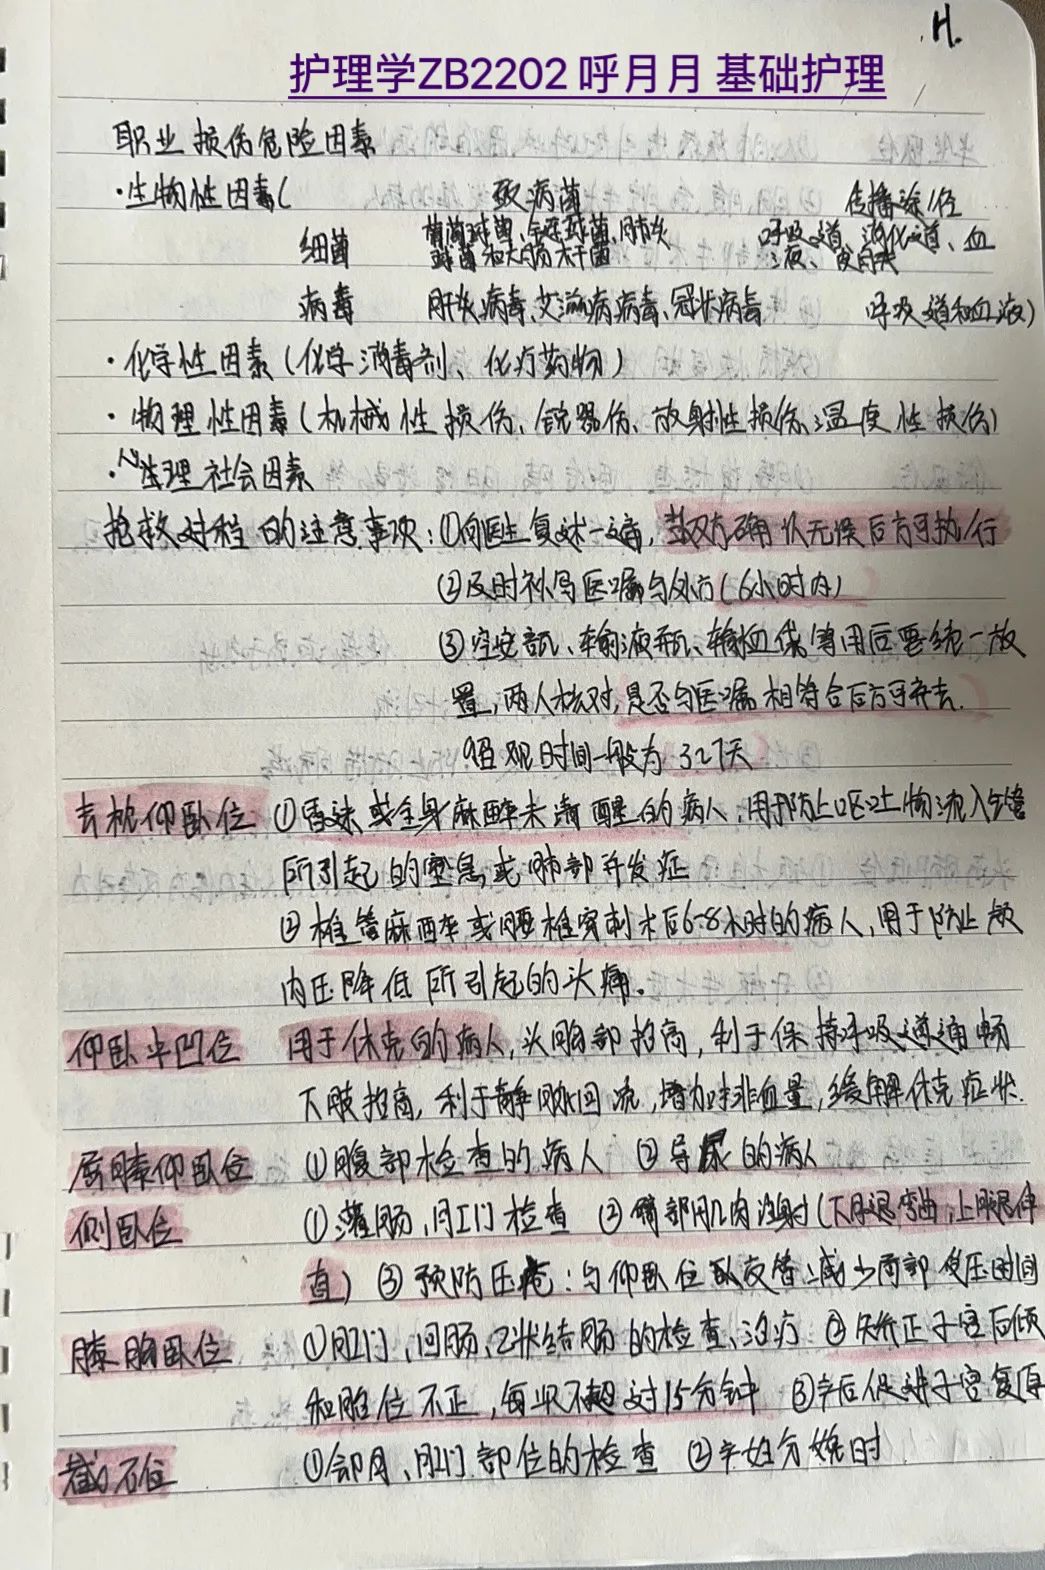 H.
护理学ZB2202 呼月月 基础护理
职业损伤危险因素
·生物性因素( 致病菌 传播途径
细菌 葡萄球菌、链球菌、肺炎 呼吸道、消化道、血
球菌和大肠杆菌 液、皮肤
病毒 肝炎病毒、艾滋病病毒、冠状病毒 呼吸道和血液)
·化学性因素(化学消毒剂、化疗药物)
·物理性因素(机械性损伤、锐器伤、放射性损伤、温度性损伤)
·心生理社会因素
抢救过程的注意事项:①向医生复述一遍,当双方确认无误后方可执行
②及时补写医嘱与处方(6小时内)
③空安瓿、输液瓶、输血袋等用后要统一放
置,两人核对,是否与医嘱相符合后方可弃去.
留观时间一般为3~7天
去枕仰卧位 ①昏迷或全身麻醉未清醒的病人,用于防止呕吐物流入气管
所引起的窒息或肺部并发症
②椎管麻醉或腰椎穿刺术后6-8小时的病人,用于防止颅
内压降低所引起的头痛。
仰卧中凹位 用于休克的病人,头胸部抬高,利于保持呼吸道通畅
下肢抬高,利于静脉回流,增加心排血量,缓解休克症状.
屈膝仰卧位 ①腹部检查的病人 ②导尿的病人
侧卧位 ①灌肠,肛门检查 ②臀部肌肉注射(下腿弯曲,上腿伸
直) ③预防压疮:与仰卧位交替减少局部受压时间
膝胸卧位 ①肛门、回肠、乙状结肠的检查、治疗 ②矫正子宫后倾
和胎位不正,每次不超过15分钟 ③产后促进子宫复原
截石位 ①会阴、肛门部位的检查 ②产妇分娩时